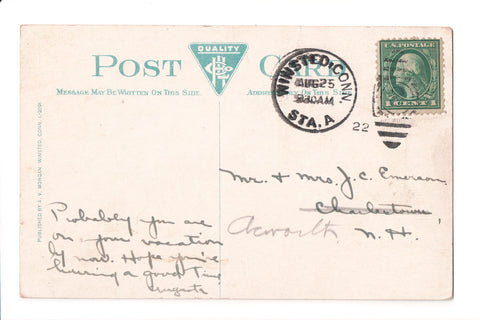 POST CARD
QUALITY
MESSAGE MAY BE WRITTEN ON THIS SIDE.
ADDRESS ONLY ON THIS SIDE.
WINSTED, CONN.
AUG 25
30 AM
STA. A
22
U.S. POSTAGE
1 CENT 1
PUBLISHED BY A. V. MORGAN WINSTED, CONN.
Mr. & Mrs. J. C. Emerson,
Charlestown
Acworth N. H.
Probably you are
on your vacation
by now. Hope you're
having a good time